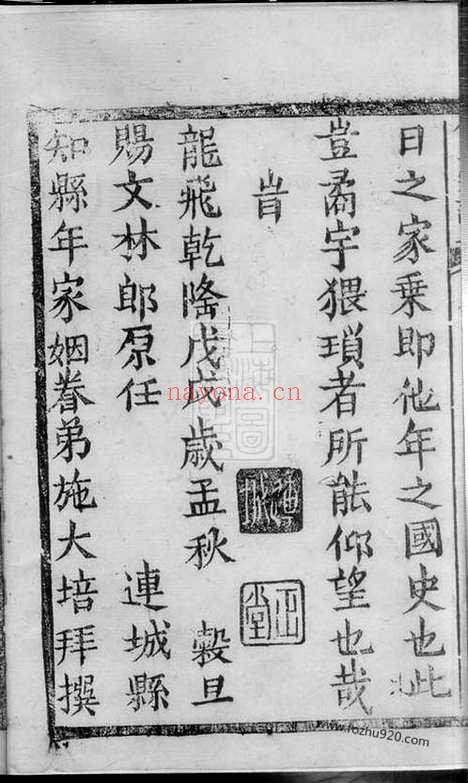 日之家乘即他年之國史也此
豈矞宇猥瑣者所能仰望也哉
旹
正堂
龍飛乾隆戊戌歲孟秋 穀旦
賜文林郎原任 連城縣
知縣年家姻眷弟施大培拜撰
nayona.cn
www.fozhu920.com